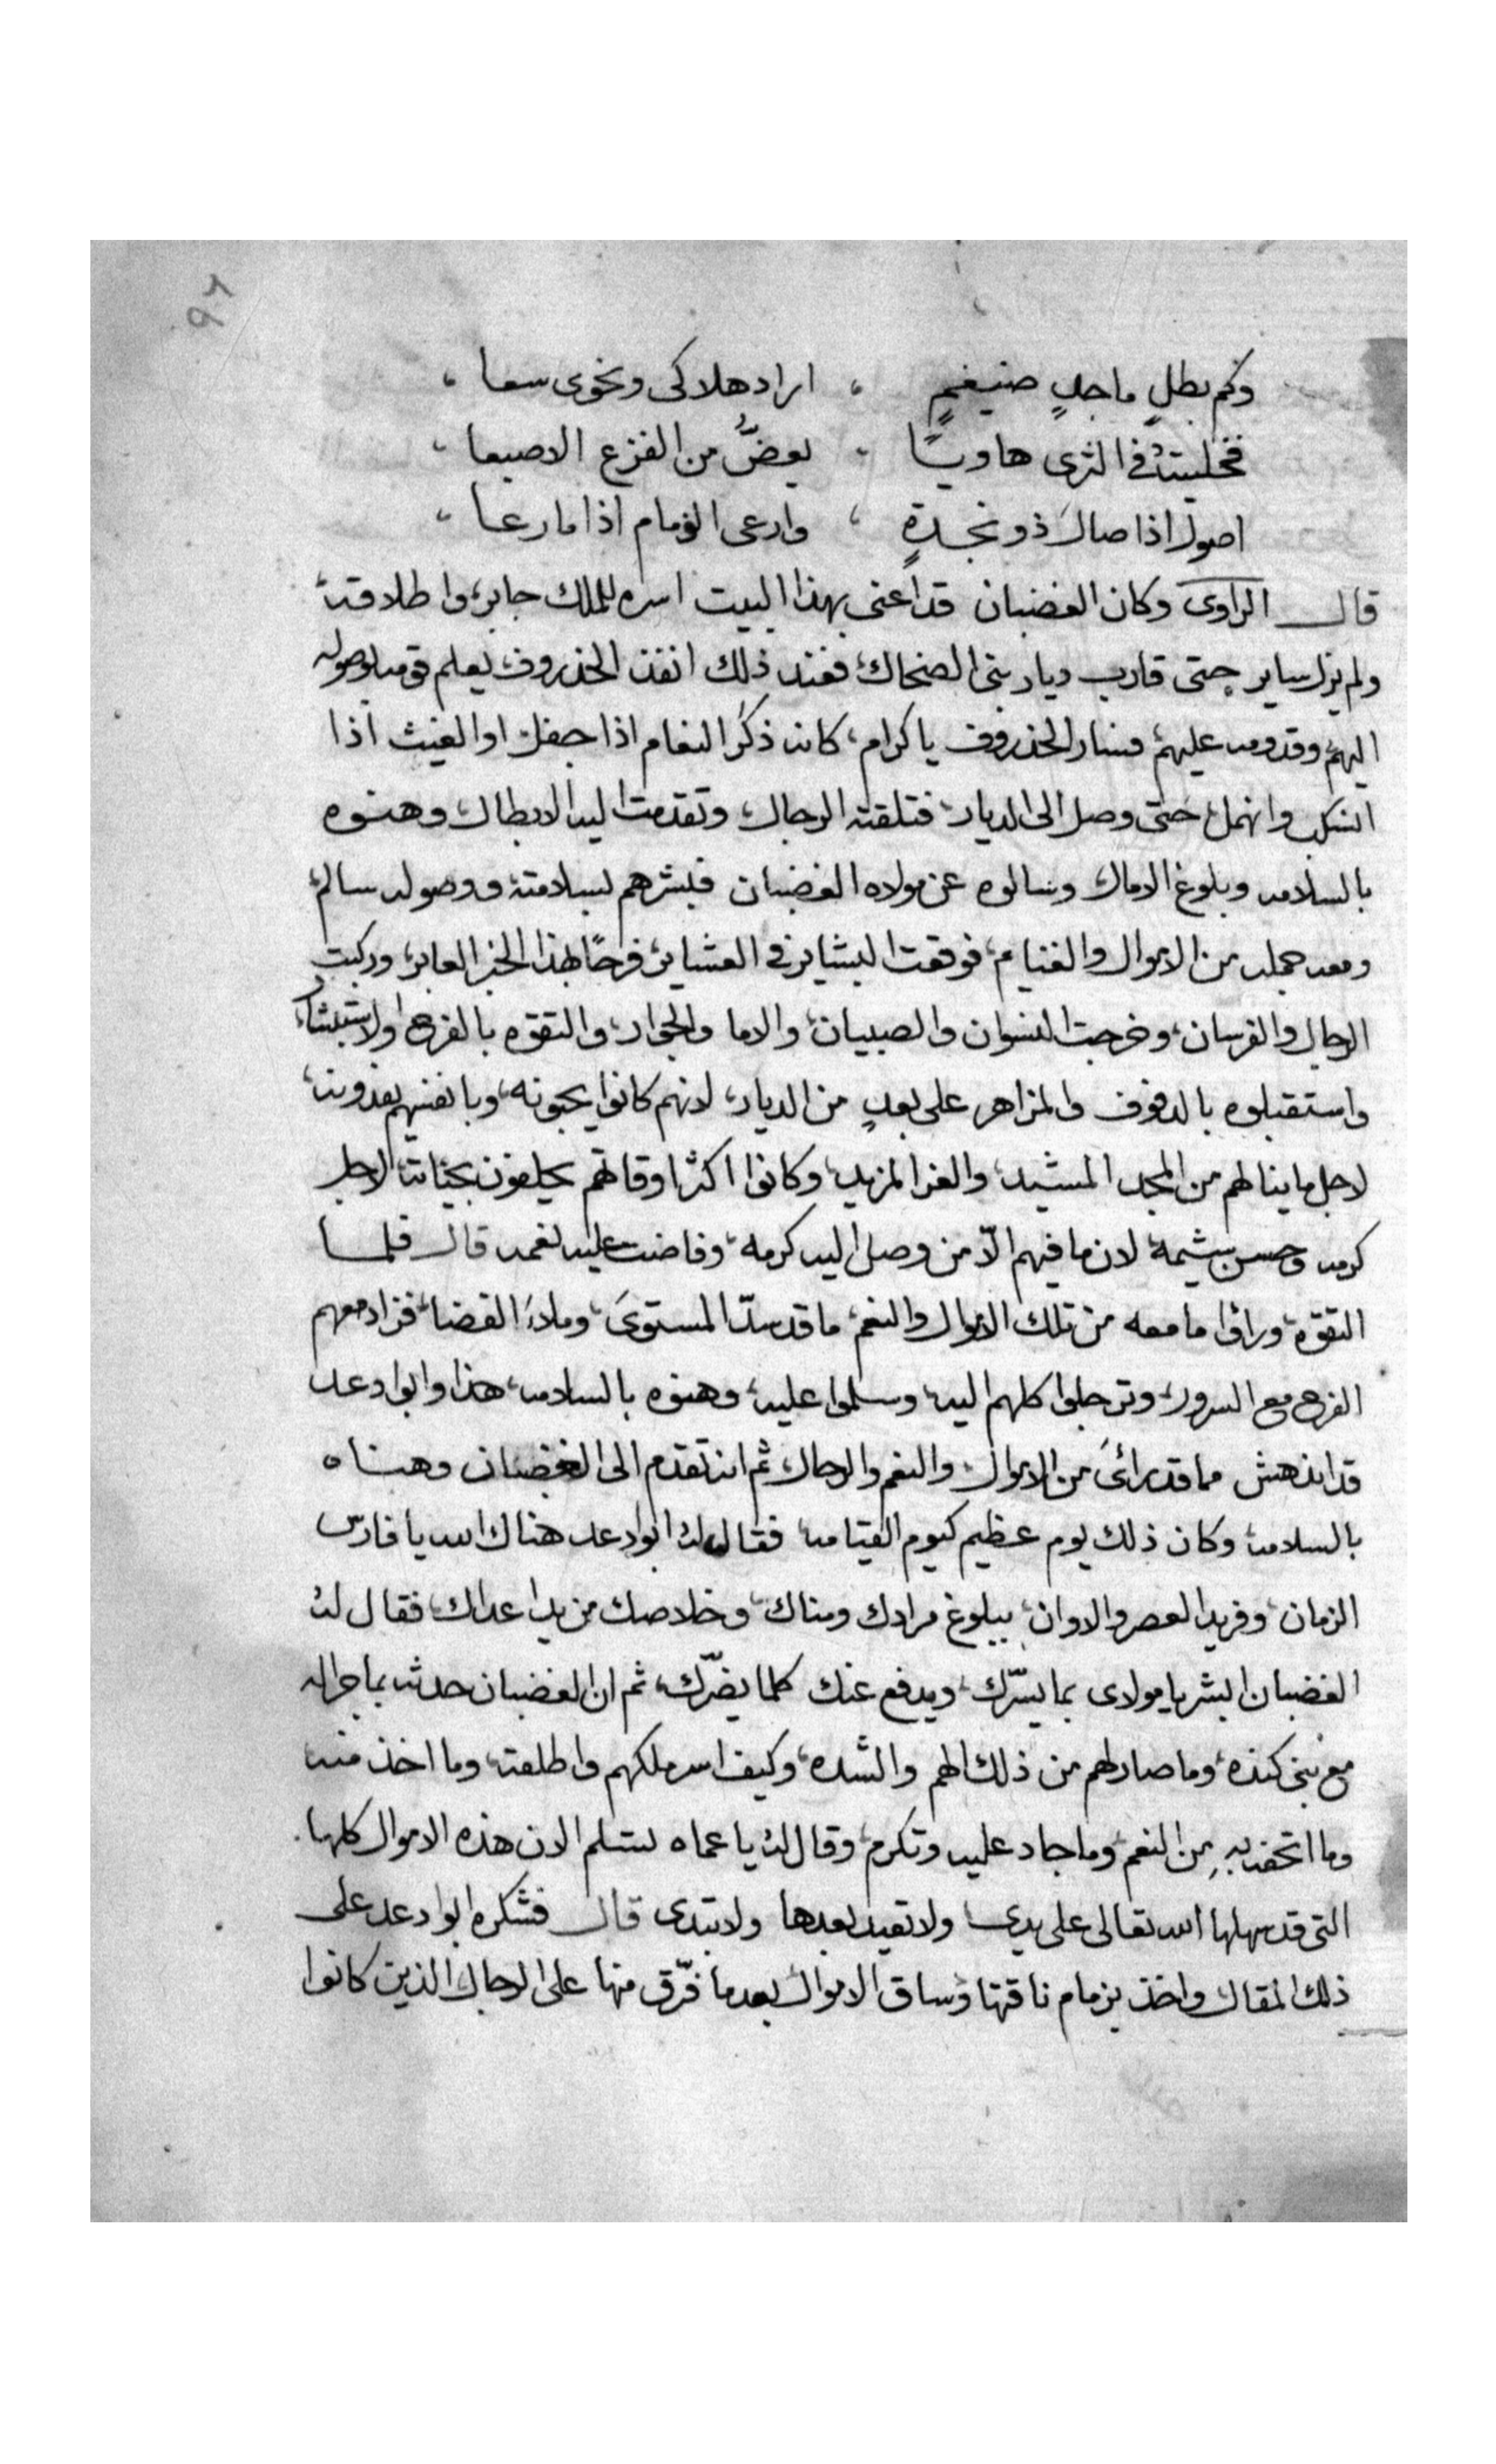 ٩٦
وكم بطلٍ ماجدٍ ضيغمٍ ، اراد هلاكى ونحوى سعا ،
فخليتهُ فى الثرى هاويًا ، يعضُّ من الفزع الاصبعا ،
اصول اذا صالَ ذو نجدةٍ ، وارعى الذمام اذا ما رعا ،
قال الراوى وكان الغضبان قد اعنى بهذا البيت اسره للملك جابر، واطلاقه،
ولم يزل ساير حتى قارب ديار بنى الضحاك، فعند ذلك انفذ الخذروف، يعلم قومه بوصوله
اليهم، وقدومه عليهم، فسار الخذروف يا كرام، كانه ذكر النعام اذا جفل، او الغيث اذا
انسكب وانهمل، حتى وصل الى الديار، فتلقته الرجال، وتقدمت اليه الابطال، وهنوه
بالسلامه وبلوغ الامال، وسالوه عن مولاه الغضبان فبشرهم بسلامته، ووصوله سالم،
ومعه جمله من الاموال والغنايم، فوقعت البشاير فى العشاير، فرحًا بهذا الخبر العابر، وركبت
الرجال والفرسان، وخرجت النسوان والصبيان، والاما والجوار، والتقوه بالفرح والاستبشار،
واستقبلوه بالدفوف والمزاهر على بعدٍ من الديار، لانهم كانوا يحبونه، وبانفسهم يفدونه،
لاجل ما ينالهم من المجد المشيد، والعز المزيد، وكانوا اكثر اوقاتهم يحلفون بحياته، لاجل
كرمه وحسن شيمه، لان ما فيهم الّا من وصل اليه كرمه، وفاضت عليه نعمه قال فلما
التقوه، وراوا ما معه من تلك الاموال والنعم، ما قد سدّ المستوىَ، وملاءَ الفضا، فزاد معهم
الفرح مع السرور، وترجلوا كلهم اليه، وسلموا عليه، وهنوه بالسلامه، هذا وابوا دعد
قد اندهش مما قد رائَ من الاموال، والنعم والرجال، ثم انه تقدم الى الغضبان وهناه
بالسلامه، وكان ذلك يوم عظيم كيوم القيامه، فقال لهُ ابوا دعد هناك الله يا فارس
الزمان، وفريد العصر والاوان، ببلوغ مرادك ومناك، وخلاصك من يد اعداك، فقال لهُ
الغضبان ابشر يا مولاى بما يسّرك، ويدفع عنك كلما يضرّك، ثم ان الغضبان حدثه بما جرا له
مع بنى كنده، وما صار لهم من ذلك الهم والشده، وكيف اسر ملكهم واطلقه، وما اخذ منه،
وما اتحفه بهِ من النعم، وما جاد عليه وتكرم، وقال لهُ يا عماه تسلم الان هذه الاموال كلها.
التى قد سهلها الله تعالى على يدى ولا تعيد بعدها ولا تبتدى قال فشكره ابوا دعد على
ذلك المقال، واخذ بزمام ناقتها وساق الاموال، بعدما فرّق منها على الرجال الذين كانوا